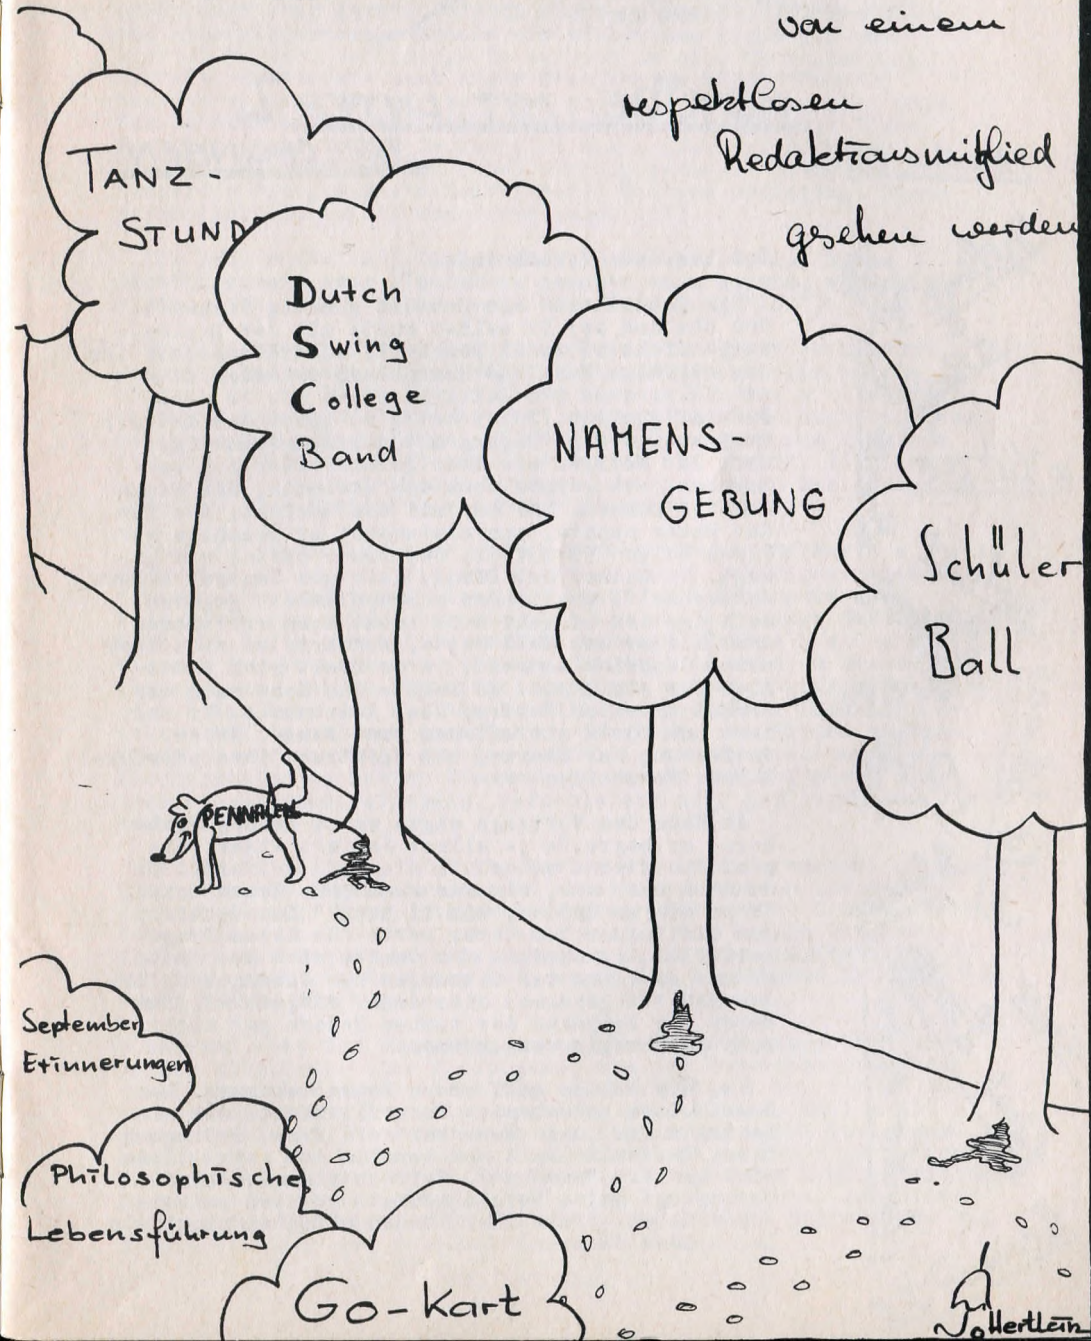 von einem
respektlosen
Redaktionsmitglied
gesehen werden
TANZ-
STUND
Dutch
Swing
College
Band
NAMENS-
GEBUNG
Schüler
Ball
September
Erinnerungen
Philosophische
Lebensführung
Go-Kart
Hertlein